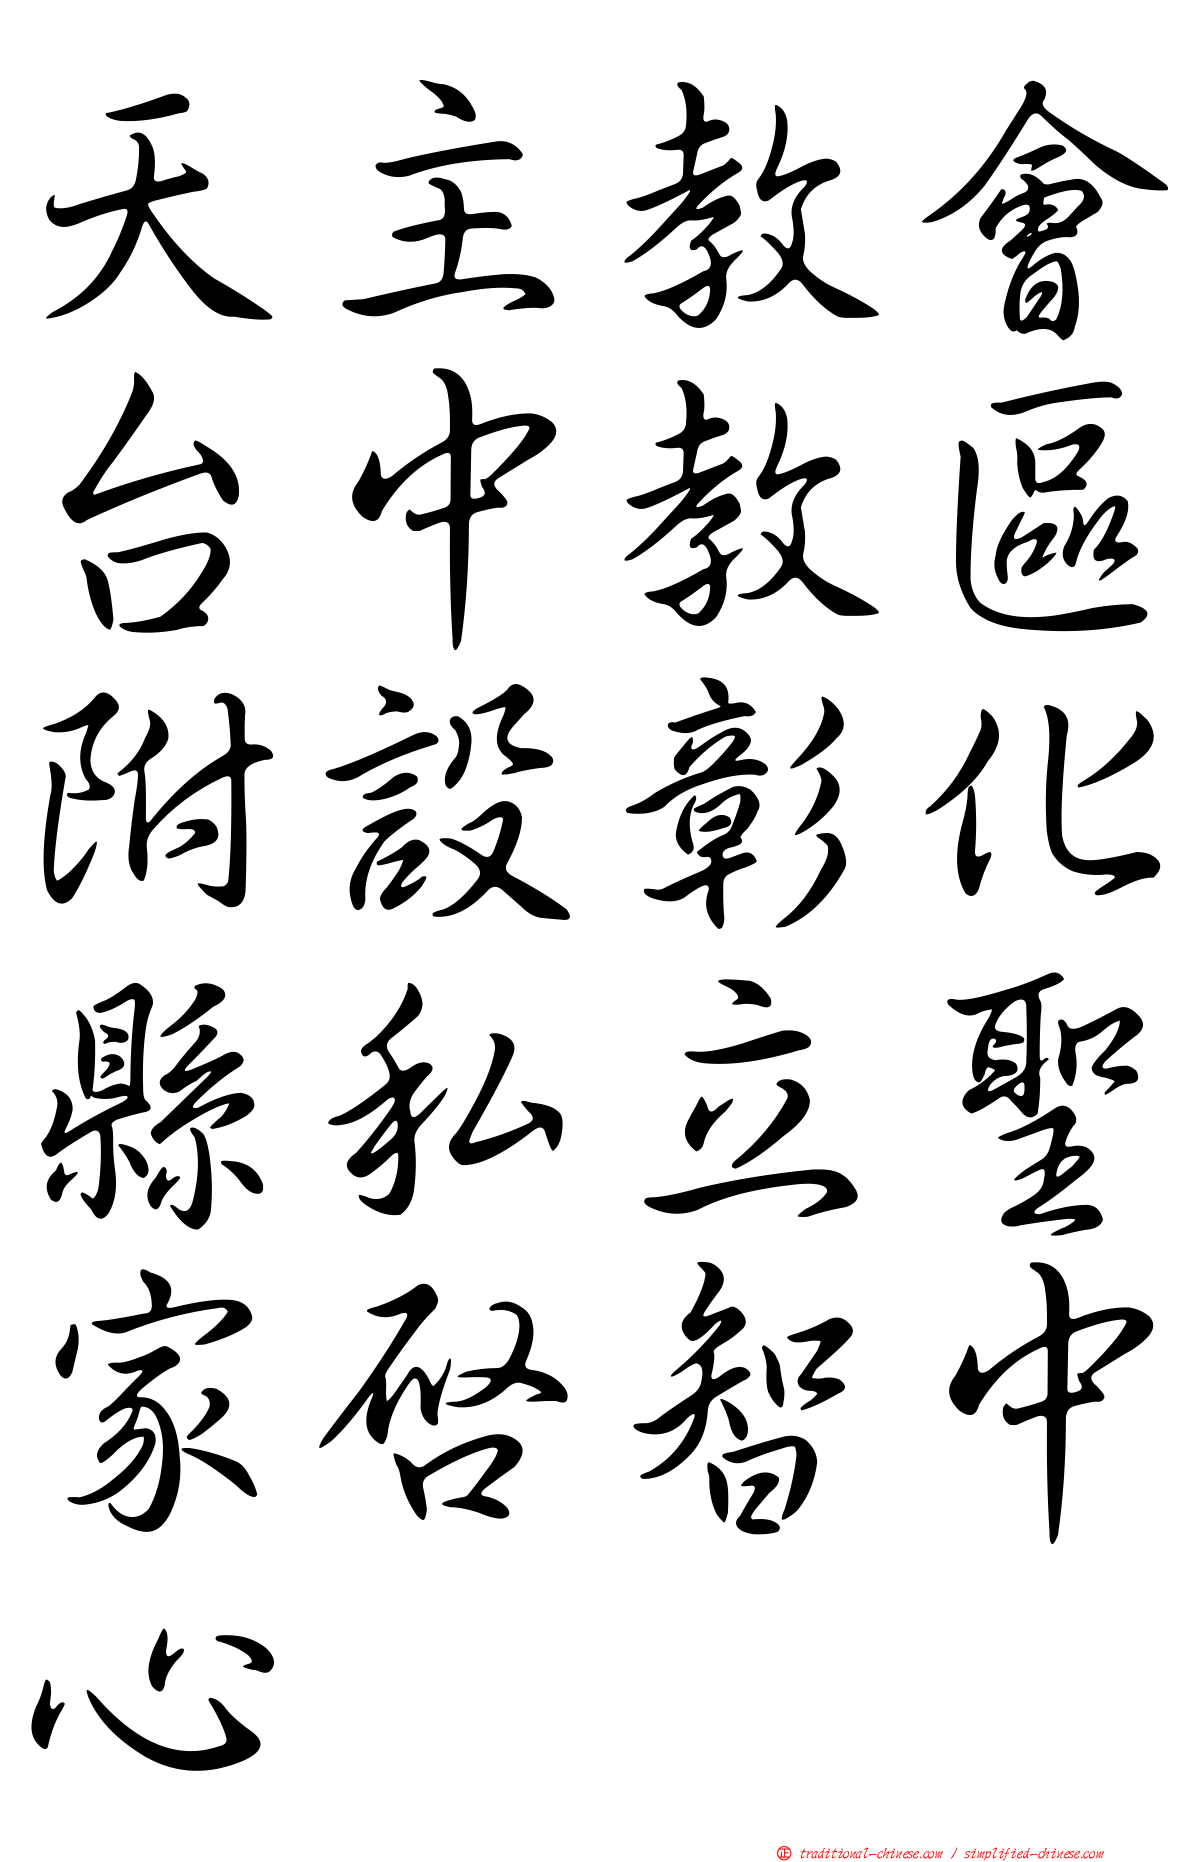 天主教會
台中教區
附設彰化
縣私立聖
家啓智中
心
正 traditional-chinese.com / simplified-chinese.com